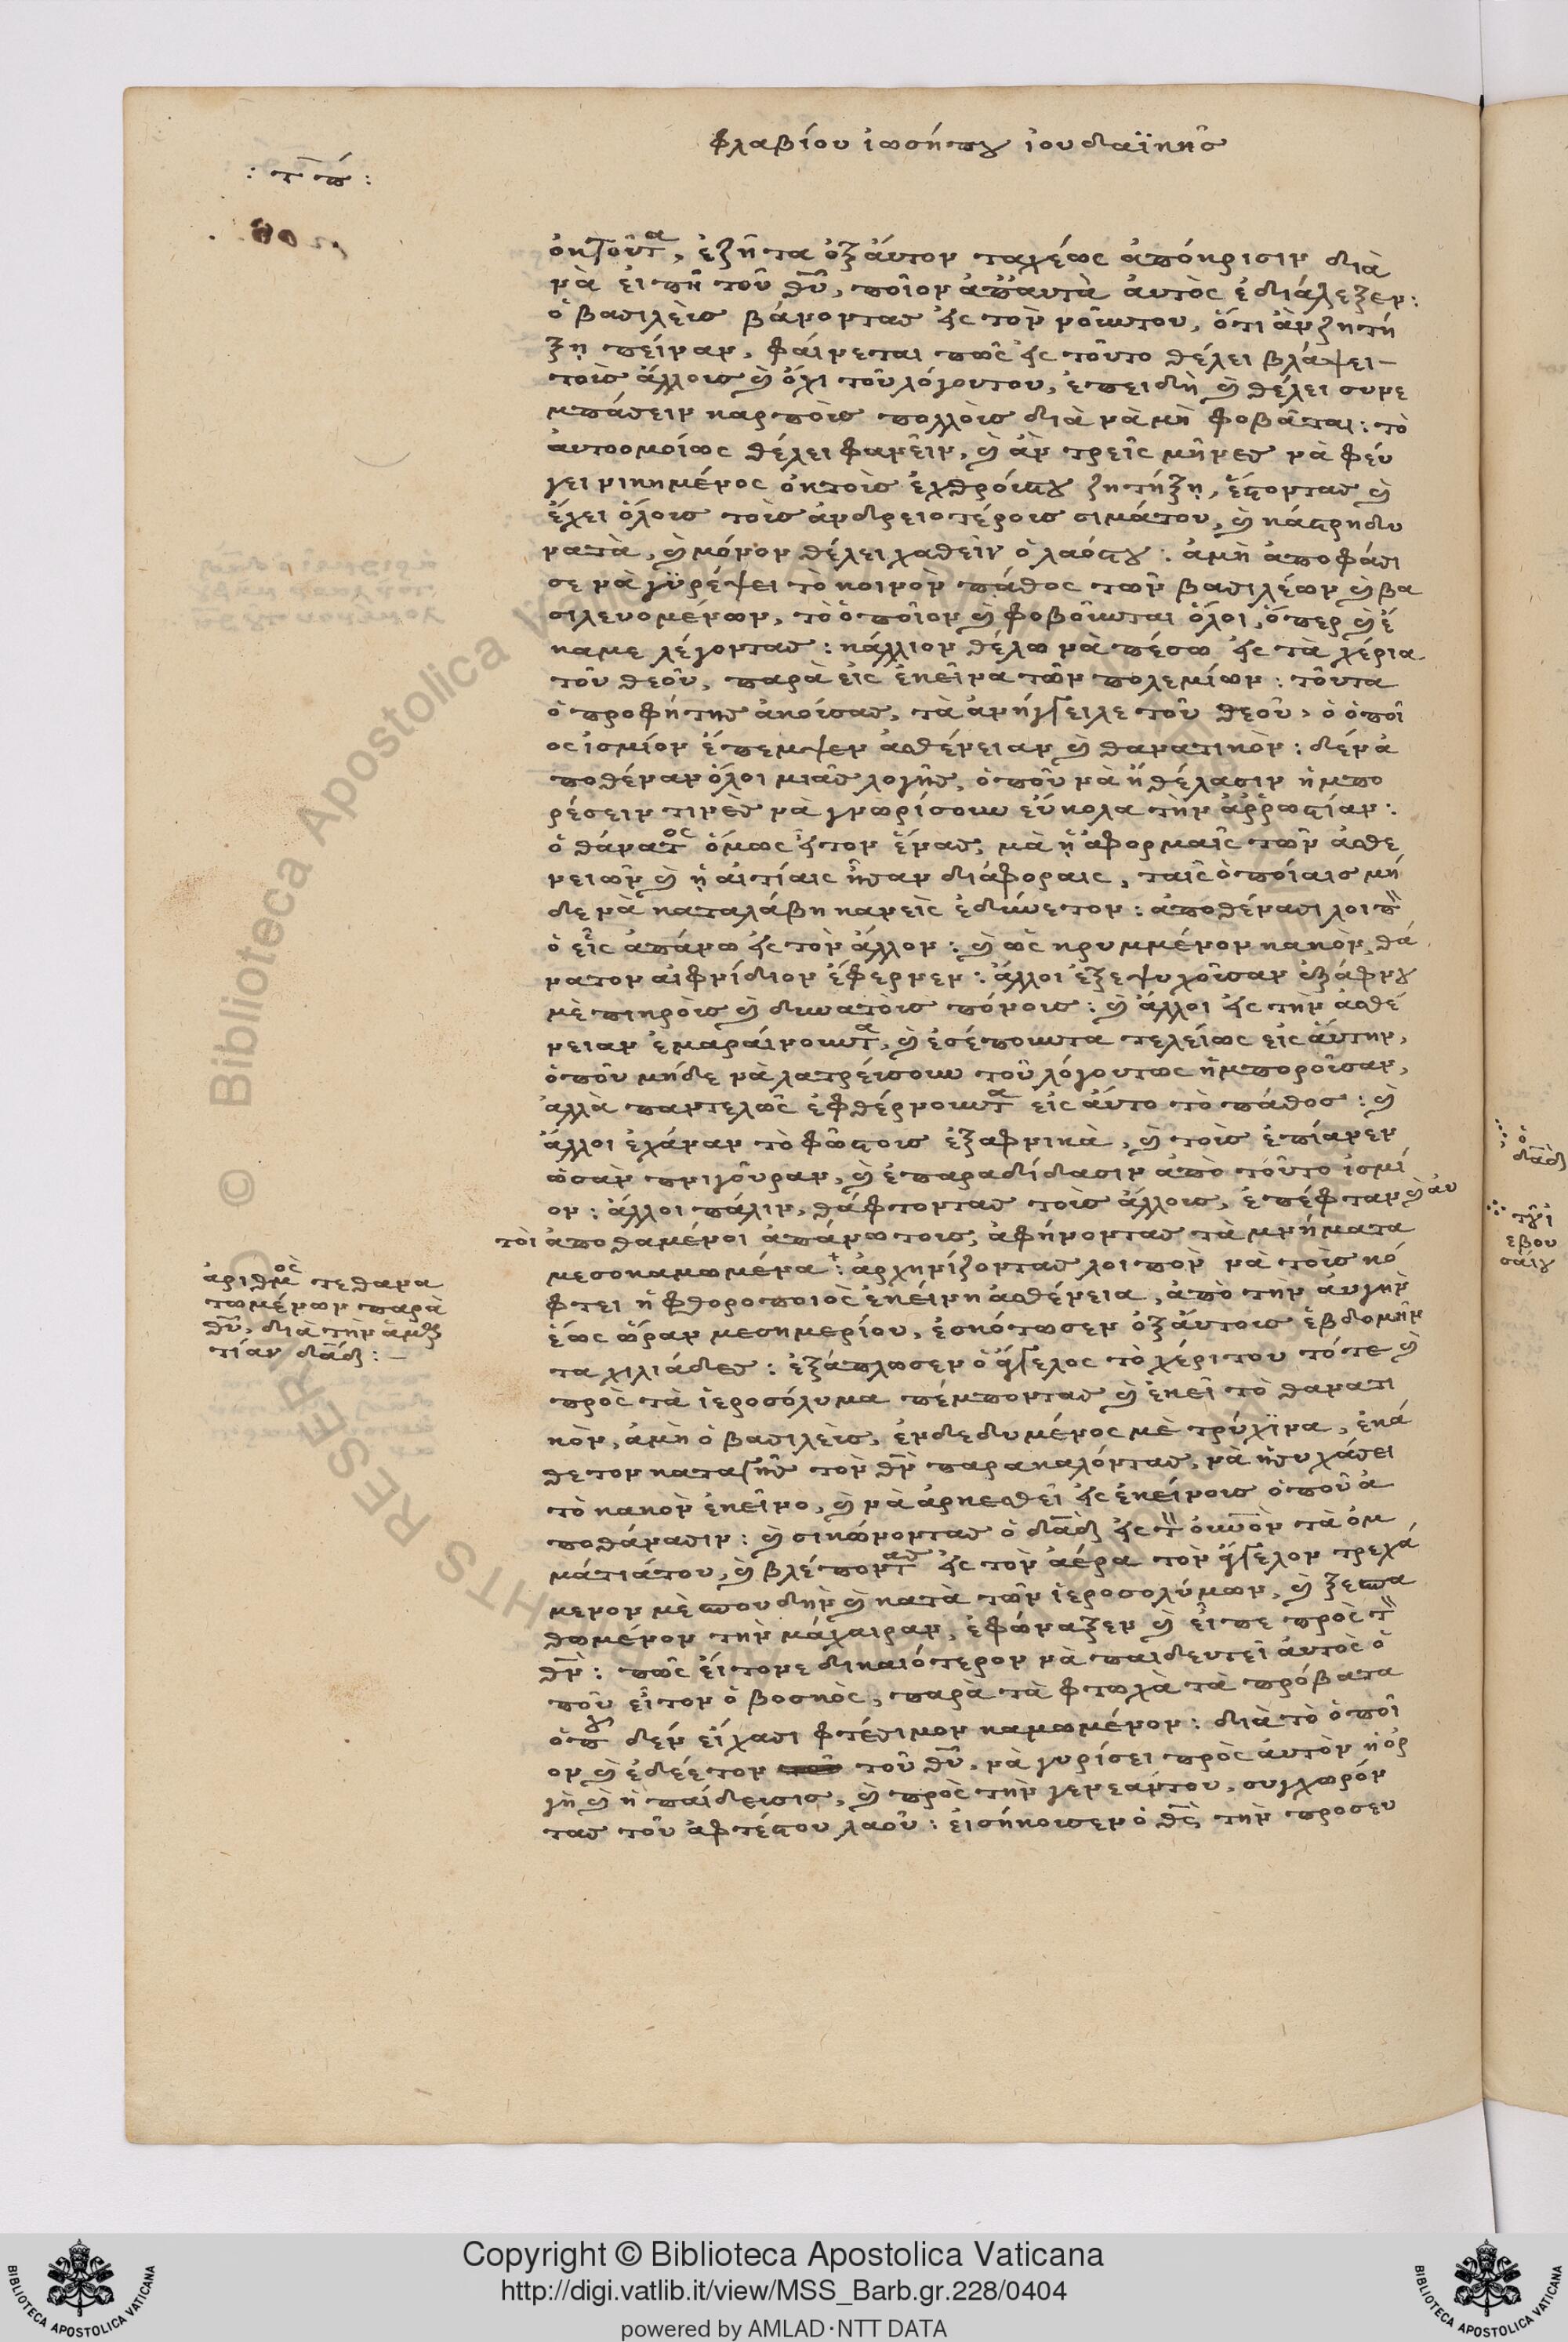 φλαβίου ἰωσήπου ἰουδαϊκῆς
: τπ :
ὀκτοῦντα, ἐζῆτα ὀξἄυτον ταχέως ἀπόκρισιν διὰ
νὰ εἰπῆ τοῦ θῦ, ποῖον ἀπἄυτὰ ἀυτὸς ἐδιάλεξεν :
ὁ βασιλεὶς βάνοντας εἰς τὸν νοῦντου, ὅτι ἂν ζητή
ξῃ πεῖναν, φαίνεται πῶς εἰς τοῦτο θέλει βλάψει
τοὶς ἄλλοις καὶ ὄχι τοῦ λόγουντου, ἐπειδὴ καὶ θέλει συνε
μπάσειν καρποὶς πολλοὶς διὰ νὰ μὴ φοβᾶται : τὸ
ἀυτοομοίως θέλει φανεῖν, καὶ ἂν τρεῖς μῆνες νὰ φεύ
γει νικημένος ὀκτοὶς ἐχθροίστου ζητήξῃ, ἔστοντας καὶ
ἔχει ὅλοις τοὶς ἀνδρειοτέροις σιμάτου, καὶ κάστρη δυ
νατὰ, καὶ μόνον θέλει χαθεῖν ὁ λαόστου : ἀμὴ ἀποφάσι
σε νὰ γυρέψει τὸ κοινὸν πάθος τῶν βασιλέων καὶ βα
σιλευομένων, τὸ ὁποῖον καὶ φοβοῦνται ὅλοι, ὅπερ καὶ ἔ
καμε λέγοντας : κάλλιον θέλω νὰ πέσω εἰς τὰ χέρια
τοῦ θεοῦ, παρὰ εἰς ἐκεῖνα τῶν πολεμίων : τοῦτα
ὁ προφήτης ἀκούσας, τὰ ἀνήγγειλε τοῦ θεοῦ, ὁ ὁποῖ
ος ἰσμίον ἔπεμψεν ἀσθένειαν καὶ θανατικὸν : δὲν ἀ
ποθέναν ὅλοι μιᾶς λογῆς, ὁποῦ νὰ ἤθέλασιν ἠμπο
ρέσειν τινὲς νὰ γνωρίσουν εὔκολα τὴν ἀρρωστίαν :
ὁ θάνατος ὅμως ἦτον ἕνας, μὰ ᾑ ἀφορμαῖς τῶν ἀσθε
νειῶν καὶ ᾑ αἰτίαις ἦσαν διάφοραις, ταῖς ὁποίαις μή
δε νὰ καταλάβη κανεὶς ἐδύνετον : ἀποθένασι λοιπὸν
ὁ εἷς ἀπάνω εἰς τὸν ἄλλον : καὶ ὡς κρυμμένον κακὸν θά
νατον αἰφνίδιον ἔφερνεν : ἄλλοι ἐξεψυχοῦσαν ἐξάφνου
μὲ πικροὶς καὶ δυνατοὶς πόνοις : καὶ ἄλλοι εἰς τὴν ἀσθέ
νειαν ἐμαραίνουντα, καὶ ἐσέπουντα τελείως εἰς ἀύτην,
ὁποῦ μήδε νὰ λατρεύσουν τοῦ λόγουντως ἠμποροῦσαν,
ἀλλὰ παντελῶς ἐφθέρνουντα εἰς ἀύτο τὸ πάθος : καὶ
ἄλλοι ἐχάναν τὸ φῶςτοις ἐξαφνικὰ, καὶ τοὶς ἐπίανεν
ὡσὰν πνιγοῦραν, καὶ ἐπαραδίδασιν ἀπὸ τοῦτο ἰσμί
ον : ἄλλοι πάλιν, θάφτοντας τοὶς ἄλλοις, ἐπέφταν καὶ ἀυ
τὸι ἀποθαμένοι ἀπάνωτοις, ἀφήνοντας τὰ μνήματα
μεσοκαμωμένα : ἀρχηνίζοντας λοιπὸν νὰ τοὶς κό
φτει ἡ φθοροποιὸς ἐκείνη ἀσθένεια, ἀπὸ τὴν ἀυγὴν
ἕως ὥραν μεσημερίου, ἐσκότωσεν ὀξἄυτοις ἑβδομῆν
τα χιλιάδες : ἐξάπλωσεν ὁ ἄγγελος τὸ χέριτου τότε καὶ
πρὸς τὰ ἱεροσόλυμα πέμποντας καὶ ἐκεῖ τὸ θανατι
κὸν, ἀμὴ ὁ βασιλεὶς, ἐνδεδυμένος μὲ τρύχϊνα, ἐκά
θετον καταγῆς τὸν θν παρακαλόντας, νὰ ἡσυχάσει
τὸ κακὸν ἐκεῖνο, καὶ νὰ ἀρκεσθεῖ εἰς ἐκείνοις ὁποῦ ἀ
ποθάνασιν : καὶ σικώνοντας ὁ δαδ εἰς τὸν οὐνὸν τὰ ὀμ
μάτιάτου, καὶ βλέποντας εἰς τὸν ἀέρα τὸν ἄγγελον τρεχά
μενον μὲ σπουδὴν καὶ κατὰ τῶν ἱεροσολύμων, καὶ ξεσπα
θωμένον τὴν μάχαιραν, ἐφώναξεν καὶ εἶπε πρὸς τὸν
θν : πῶς εἴτονε δικαιότερον νὰ παιδευτεῖ ἀυτὸς ὁ
ποῦ εἶτον ὁ βοσκὸς, παρὰ τὰ φτωχὰ τὰ πρόβατα
ὁποῦ δὲν εἴχασι φτέσιμον καμωμένον : διὰ τὸ ὁποῖ
ον καὶ ἐδέετον τοῦ θῦ, νὰ γυρίσει πρὸς ἀυτὸν ἡ ὀρ
γὴ καὶ ἡ παίδευσις, καὶ πρὸς τὴν γενεάντου, συγχωρόν
τας τοῦ ἀφτέστου λαοῦ : εἰσήκουσεν ὁ θς τὴν προσευ
ἀριθμὸς τεθανα
τωμένων παρὰ
θῦ, διὰ τὴν ἁμαρ
τίαν δαδ :
ὁ
δαδ
εβου
σάιου
Copyright © Biblioteca Apostolica Vaticana
http://digi.vatlib.it/view/MSS_Barb.gr.228/0404
powered by AMLAD·NTT DATA
BIBLIOTECA APOSTOLICA VATICANA
BIBLIOTECA APOSTOLICA VATICANA